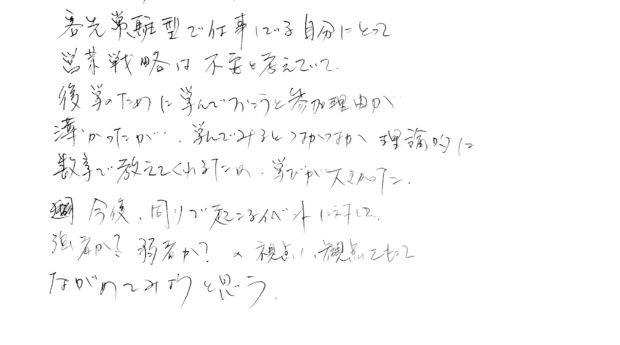 客先常駐型で仕事している自分にとって
営業戦略は不要と考えていて、
後学のために学んでおこうと参加理由が
薄かったが、学んでみるとなかなか理論的に
数字で教えてくれるため、学びが大きかった。
今後、周りで起こるイベントに対して、
強者か?弱者か?の視点、観点でもって
ながめてみようと思う。